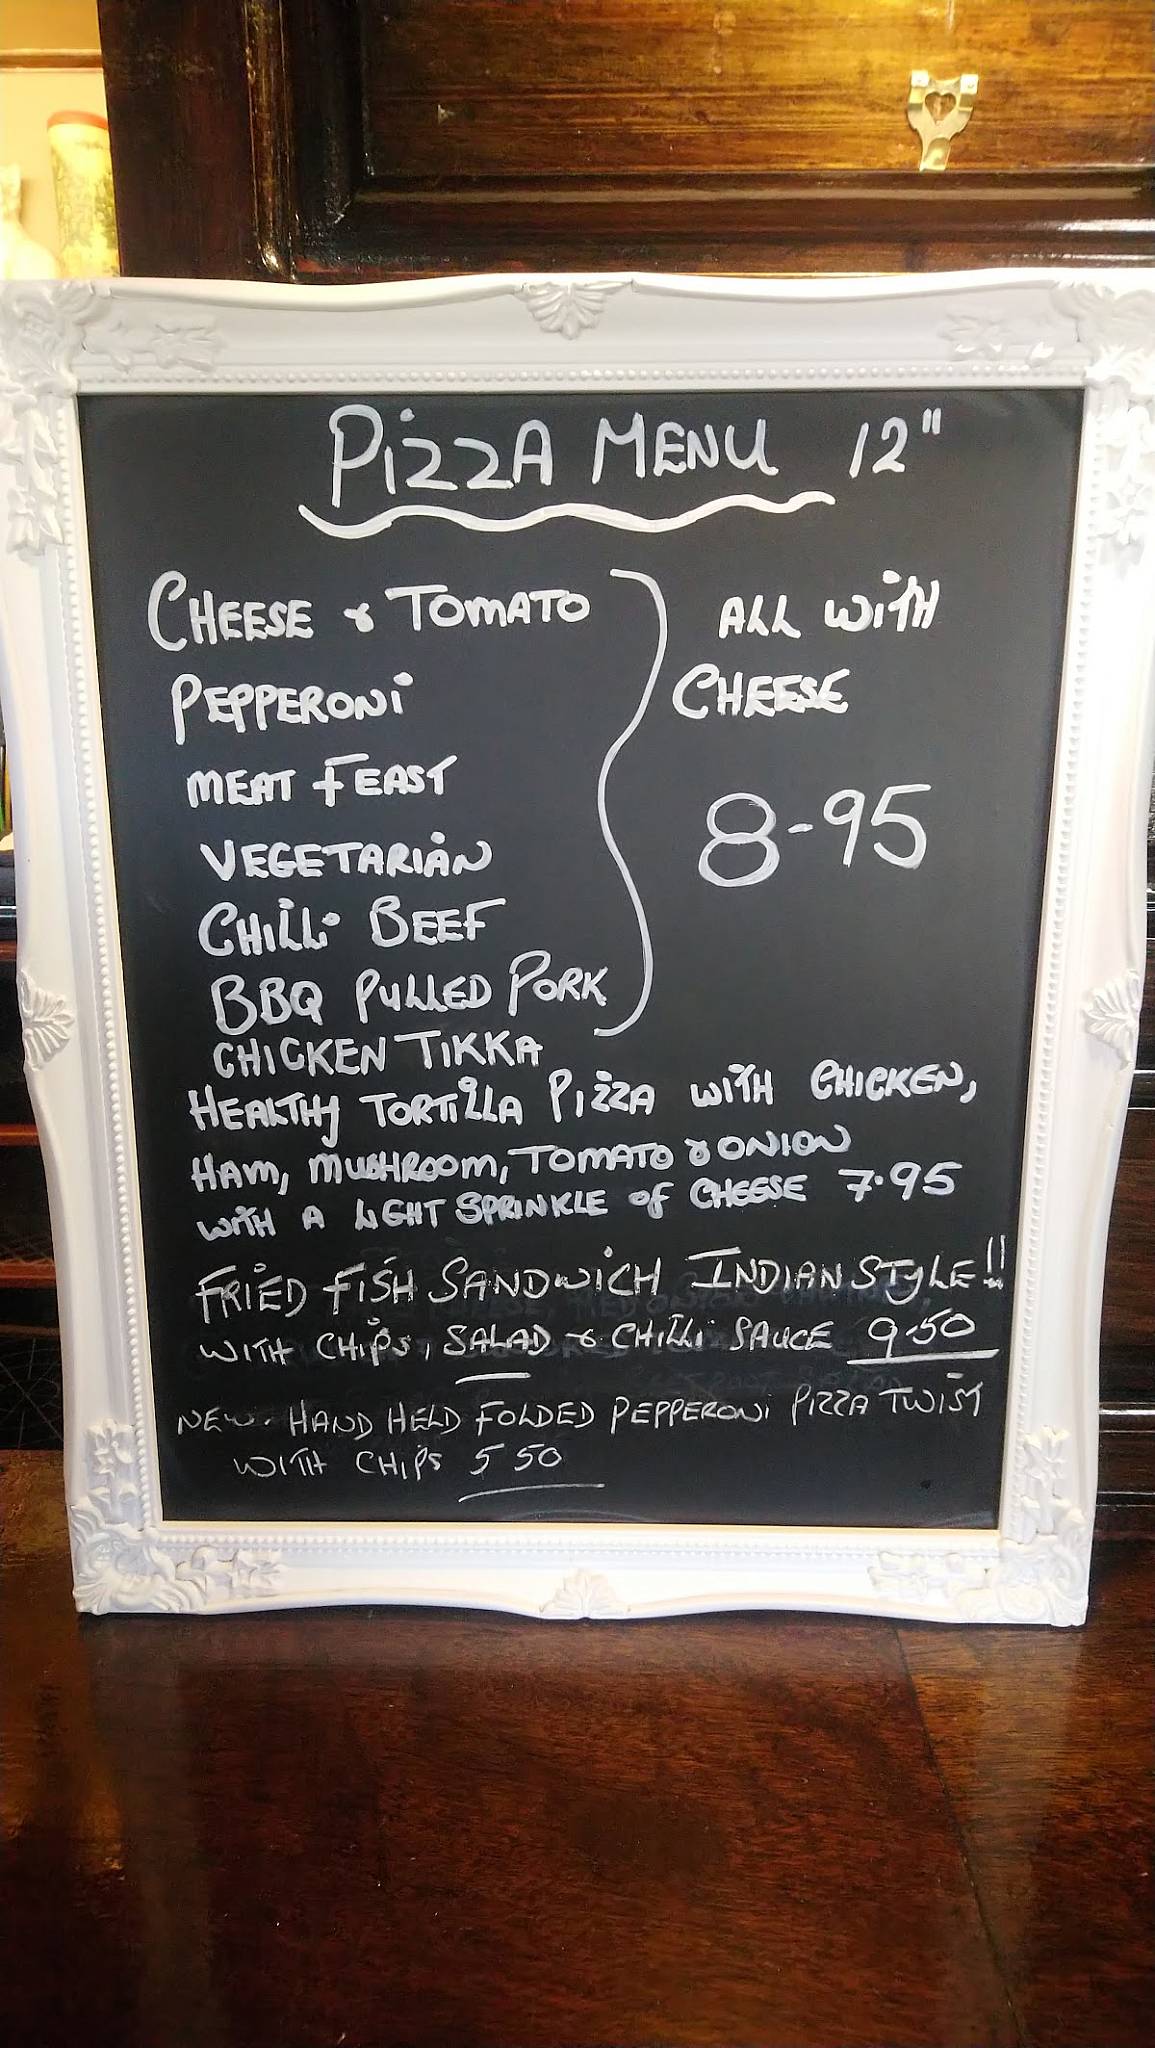 PiZZA MENU 12"
CHEESE & TOMATO
PEPPERONi
MEAT FEAST
VEGETARiAN
CHiLLi BEEF
BBQ PULLED PORK
CHICKEN TIKKA
ALL WiTH
CHEESE
8-95
HEALTHY TORTiLLA PiZZA WiTH CHICKEN,
HAM, MUSHROOM, TOMATO & ONION
WiTH A LIGHT SPRINKLE OF CHEESE 7.95
FRiED FiSH SANDWiCH INDIAN STYLE!!
WITH CHiPS, SALAD & CHiLLi SAUCE 9.50
NEW. HAND HELD FOLDED PEPPERONi PiZZA TWiST
WITH CHiPS 5 50